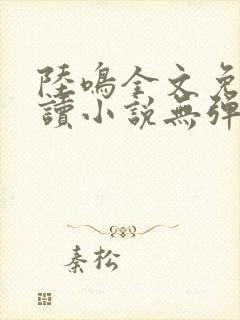 陸鳴全文免
讀小說無彈
秦松